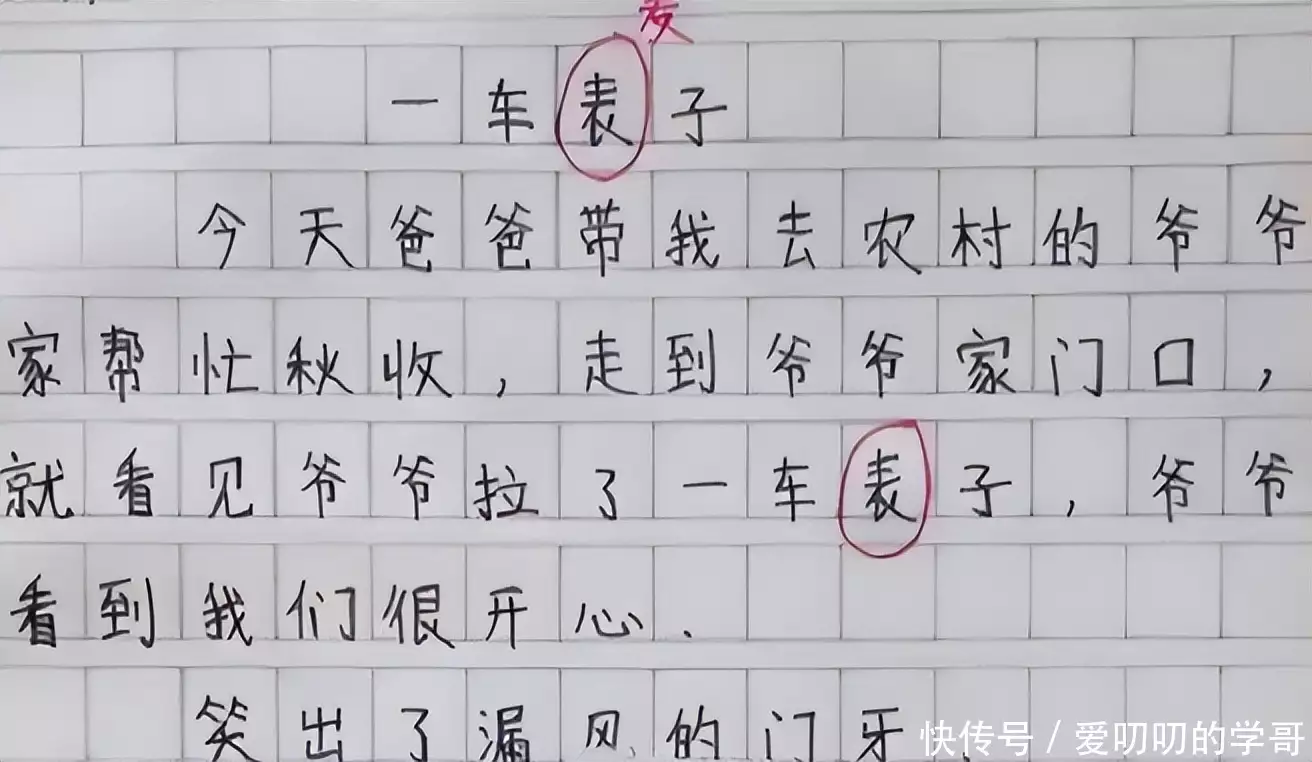 麦
一车表子
今天爸爸带我去农村的爷爷
家帮忙秋收，走到爷爷家门口，
就看见爷爷拉了一车表子，爷爷
看到我们很开心.
笑出了漏风的门牙.
快传号 / 爱叨叨的学哥